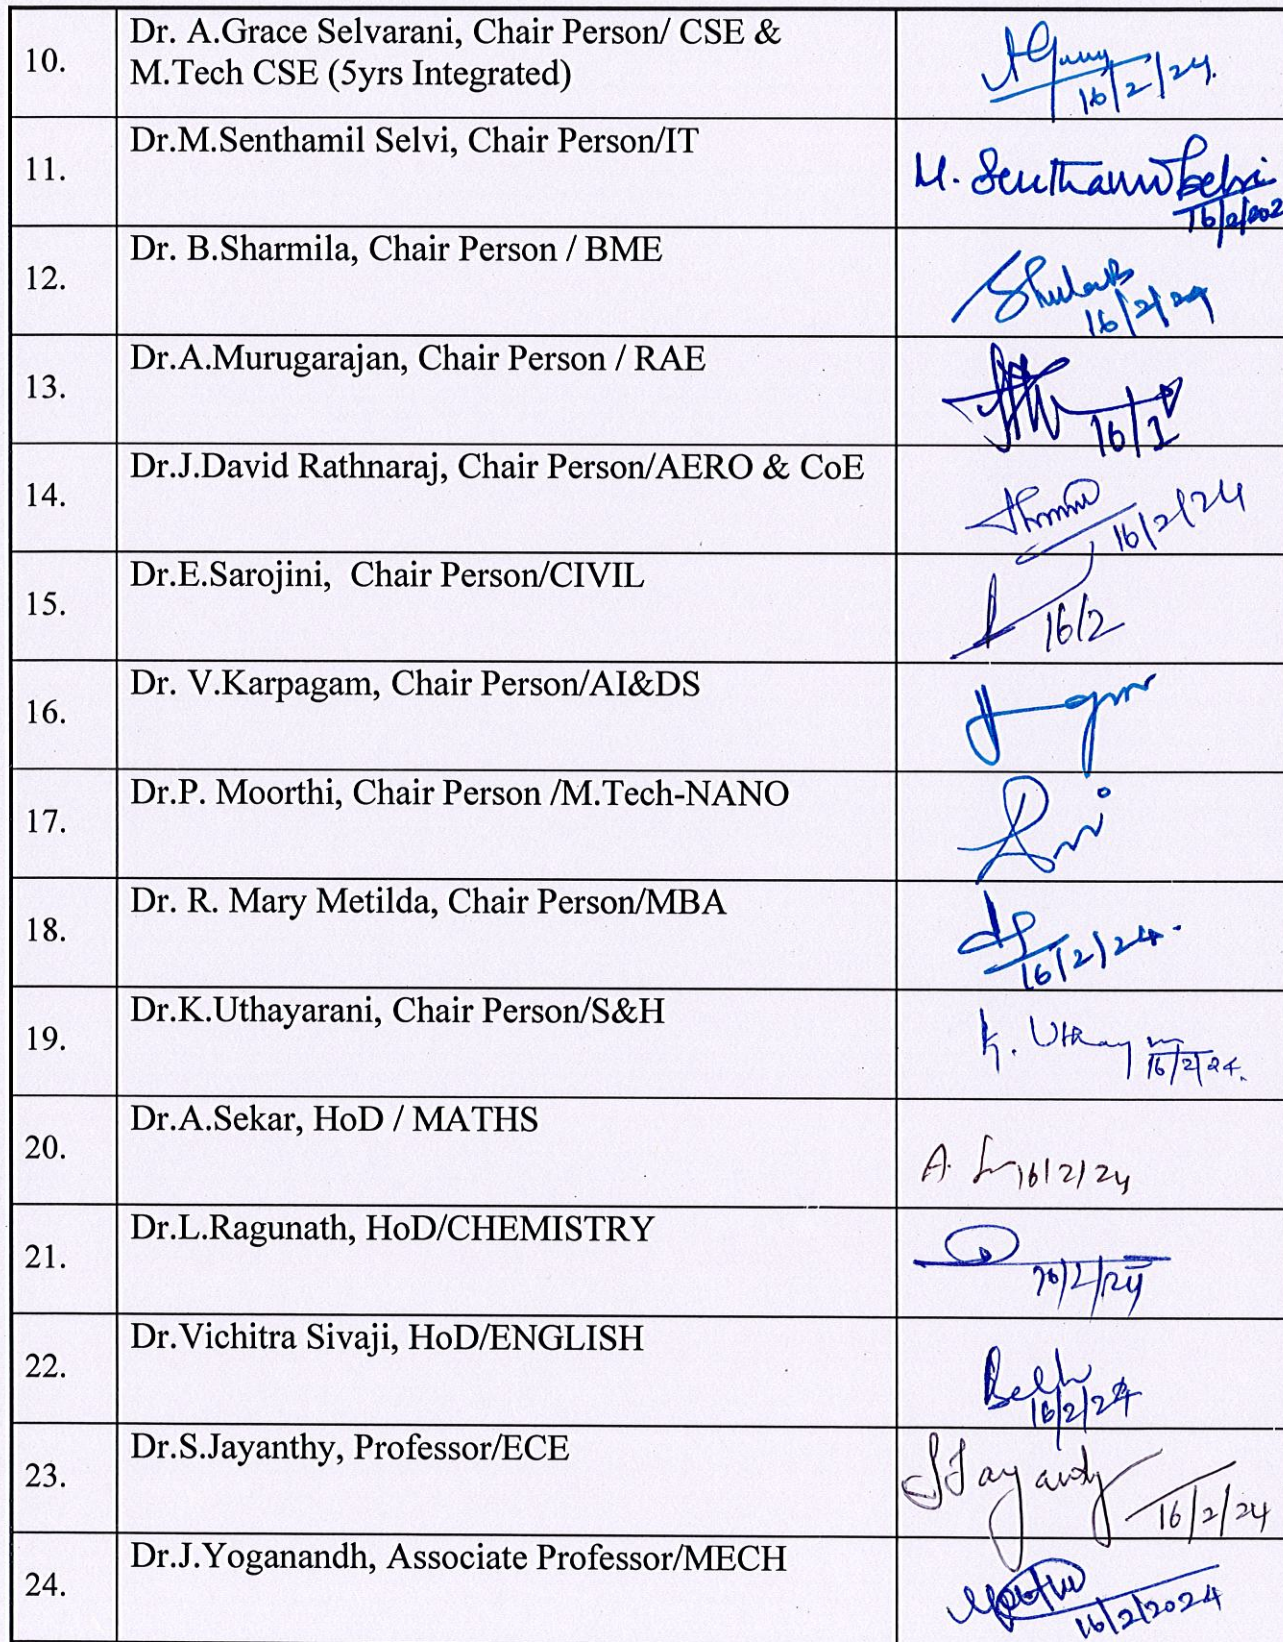 10.
Dr. A.Grace Selvarani, Chair Person/ CSE &
M.Tech CSE (5yrs Integrated)
16/2/24.
11.
Dr.M.Senthamil Selvi, Chair Person/IT
M. Senthamil Selvi
16/2/202
12.
Dr. B.Sharmila, Chair Person / BME
16/2/24
13.
Dr.A.Murugarajan, Chair Person / RAE
14.
Dr.J.David Rathnaraj, Chair Person/AERO & CoE
16/2/24
15.
Dr.E.Sarojini, Chair Person/CIVIL
16/2
16.
Dr. V.Karpagam, Chair Person/AI&DS
17.
Dr.P. Moorthi, Chair Person /M.Tech-NANO
18.
Dr. R. Mary Metilda, Chair Person/MBA
16/2/24.
19.
Dr.K.Uthayarani, Chair Person/S&H
K.
16/2/24.
20.
Dr.A.Sekar, HoD / MATHS
A. 16/2/24
21.
Dr.L.Ragunath, HoD/CHEMISTRY
22.
Dr.Vichitra Sivaji, HoD/ENGLISH
16/2/24
23.
Dr.S.Jayanthy, Professor/ECE
16/2/24
24.
Dr.J.Yoganandh, Associate Professor/MECH
16/2/2024